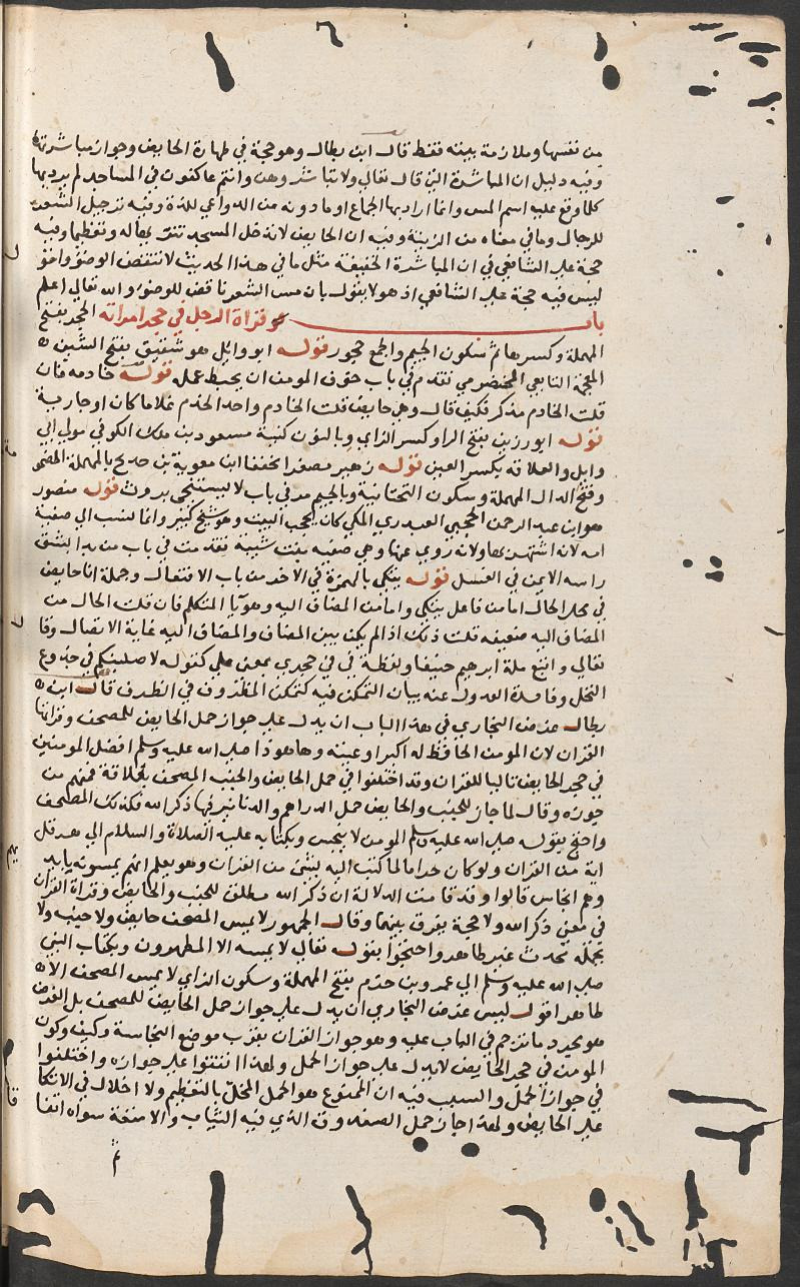 من نفسها وملازمة بيته فقط قال ابن بطال وهو حجة في طهارة الحايض وجواز مباشرتها
وفيه دليل ان المباشرة التي قال تعالي ولا تباشروهن وانتم عاكفون في المساجد لم يرد بها
كلما وقع عليه اسم المس وانما اراد بها الجماع او ما دونه من الدواعي للذة وفيه ترجيل الشعر
للرجال وما في معناه من الزينة وفيه ان الحايض لا تدخل المسجد تنزيها له وتعظيما وفيه
حجة علي الشافعي في ان المباشرة الخفيفة مثل ما في هذا الحديث لا تنقض الوضو واقول
ليس فيه حجة علي الشافعي اذ هو لا يقول بان مس الشعر ناقض للوضوء والله تعالي اعلم
باب قراة الرجل في حجر امراته الحجر بفتح
المهملة وكسرها ثم سكون الجيم والجمع حجور قوله ابو وايل هو شقيق بفتح الشين
المعجمة التابعي المخضرمي تقدم في باب خوف المومن ان يحبط عمله قوله خادمه فان
قلت الخادم مذكر فكيف قال وهي حايض قلت الخادم واحد الخدم غلاما كان او جارية
قوله ابو رزين بفتح الرا وكسر الزاي وبالنون كنية مسعود بن ملك الكوفي مولي ابي
وايل والعلاقة بكسر العين قوله زهير مصغرا مخففا ابن معوية بن حديج بالمهملة المضمومة
وفتح الدال المهملة وسكون التحتانية وبالجيم مر في باب لا يستنجي بروث قوله منصور
هو ابن عبد الرحمن الحجبي العبدري المكي كان يحجب البيت وهو شيخ كبير وانما نسب الي صفية
امه لانه اشتهر بها ولانه روي عنها وهي صفية بنت شيبة تقدمت في باب من بدا بشق
راسه الايمن في الغسل قوله يتكي بالهمزة في الاخر من باب الافتعال وجملة انا حايض
في محل الحال اما من فاعل يتكي واما من المضاف اليه وهو يا المتكلم فان قلت الحال من
المضاف اليه ضعيفه قلت ذلك اذا لم يكن بين المضاف والمضاف اليه غاية الاتصال وقال
تعالي واتبع ملة ابرهيم حنيفا ولفظة في في حجري بمعني علي كقوله لاصلبنكم في جذوع
النخل وفايدة العدول عنه بيان التمكن فيه كتمكن المظروف في الظرف قال ابن
بطال غرض البخاري في هذا الباب ان يدل علي جواز حمل الحايض للمصحف وقراتها
القران لان المومن الحافظ له اكبر اوعيته وها هو ذا صلي الله عليه وسلم افضل المومنين
في حجر الحايض تاليا للقران وقد اختلفوا في حمل الحايض والجنب المصحف بعلاقة فمنهم من
جوزه وقال لما جاز للجنب والحايض حمل الدراهم والدنانير فيها ذكر الله فكذلك المصحف
واحتج بقوله صلي الله عليه وسلم المومن لا ينجس وبكتابه عليه الصلاة والسلام الي هرقل
اية من القران ولو كان حراما لما كتب اليه بشي من القران وهو يعلم انهم يمسونه بايديهم
وهم انجاس قالوا وقد قامت الدلالة ان ذكر الله مطلق للجنب والحايض وقراة القران
في معني ذكر الله ولا حجة يفرق بينهما وقال الجمهور لا يمس المصحف حايض ولا جنب ولا
يحمله محدث غير طاهر واحتجوا بقوله تعالي لا يمسه الا المطهرون وبكتاب النبي
صلي الله عليه وسلم الي عمرو بن حزم بفتح المهملة وسكون الزاي لا يمس المصحف الا
طاهر اقول ليس غرض البخاري ان يدل علي جواز حمل الحايض للمصحف بل الغرض
هو مجرد ما ترجم في الباب عليه وهو جواز القران بقرب موضع النجاسة وكيف وكون
المومن في حجر الحايض لا يدل علي جواز الحمل ولهذا اتفقوا علي جوازه واختلفوا
في جواز الحمل والسبب فيه ان الممنوع هو الحمل المخل بالتعظيم ولا اخلال في الاتكا
علي الحايض ولهذا جاز حمل الصندوق الذي فيه الثياب والامتعة سواه اتفا